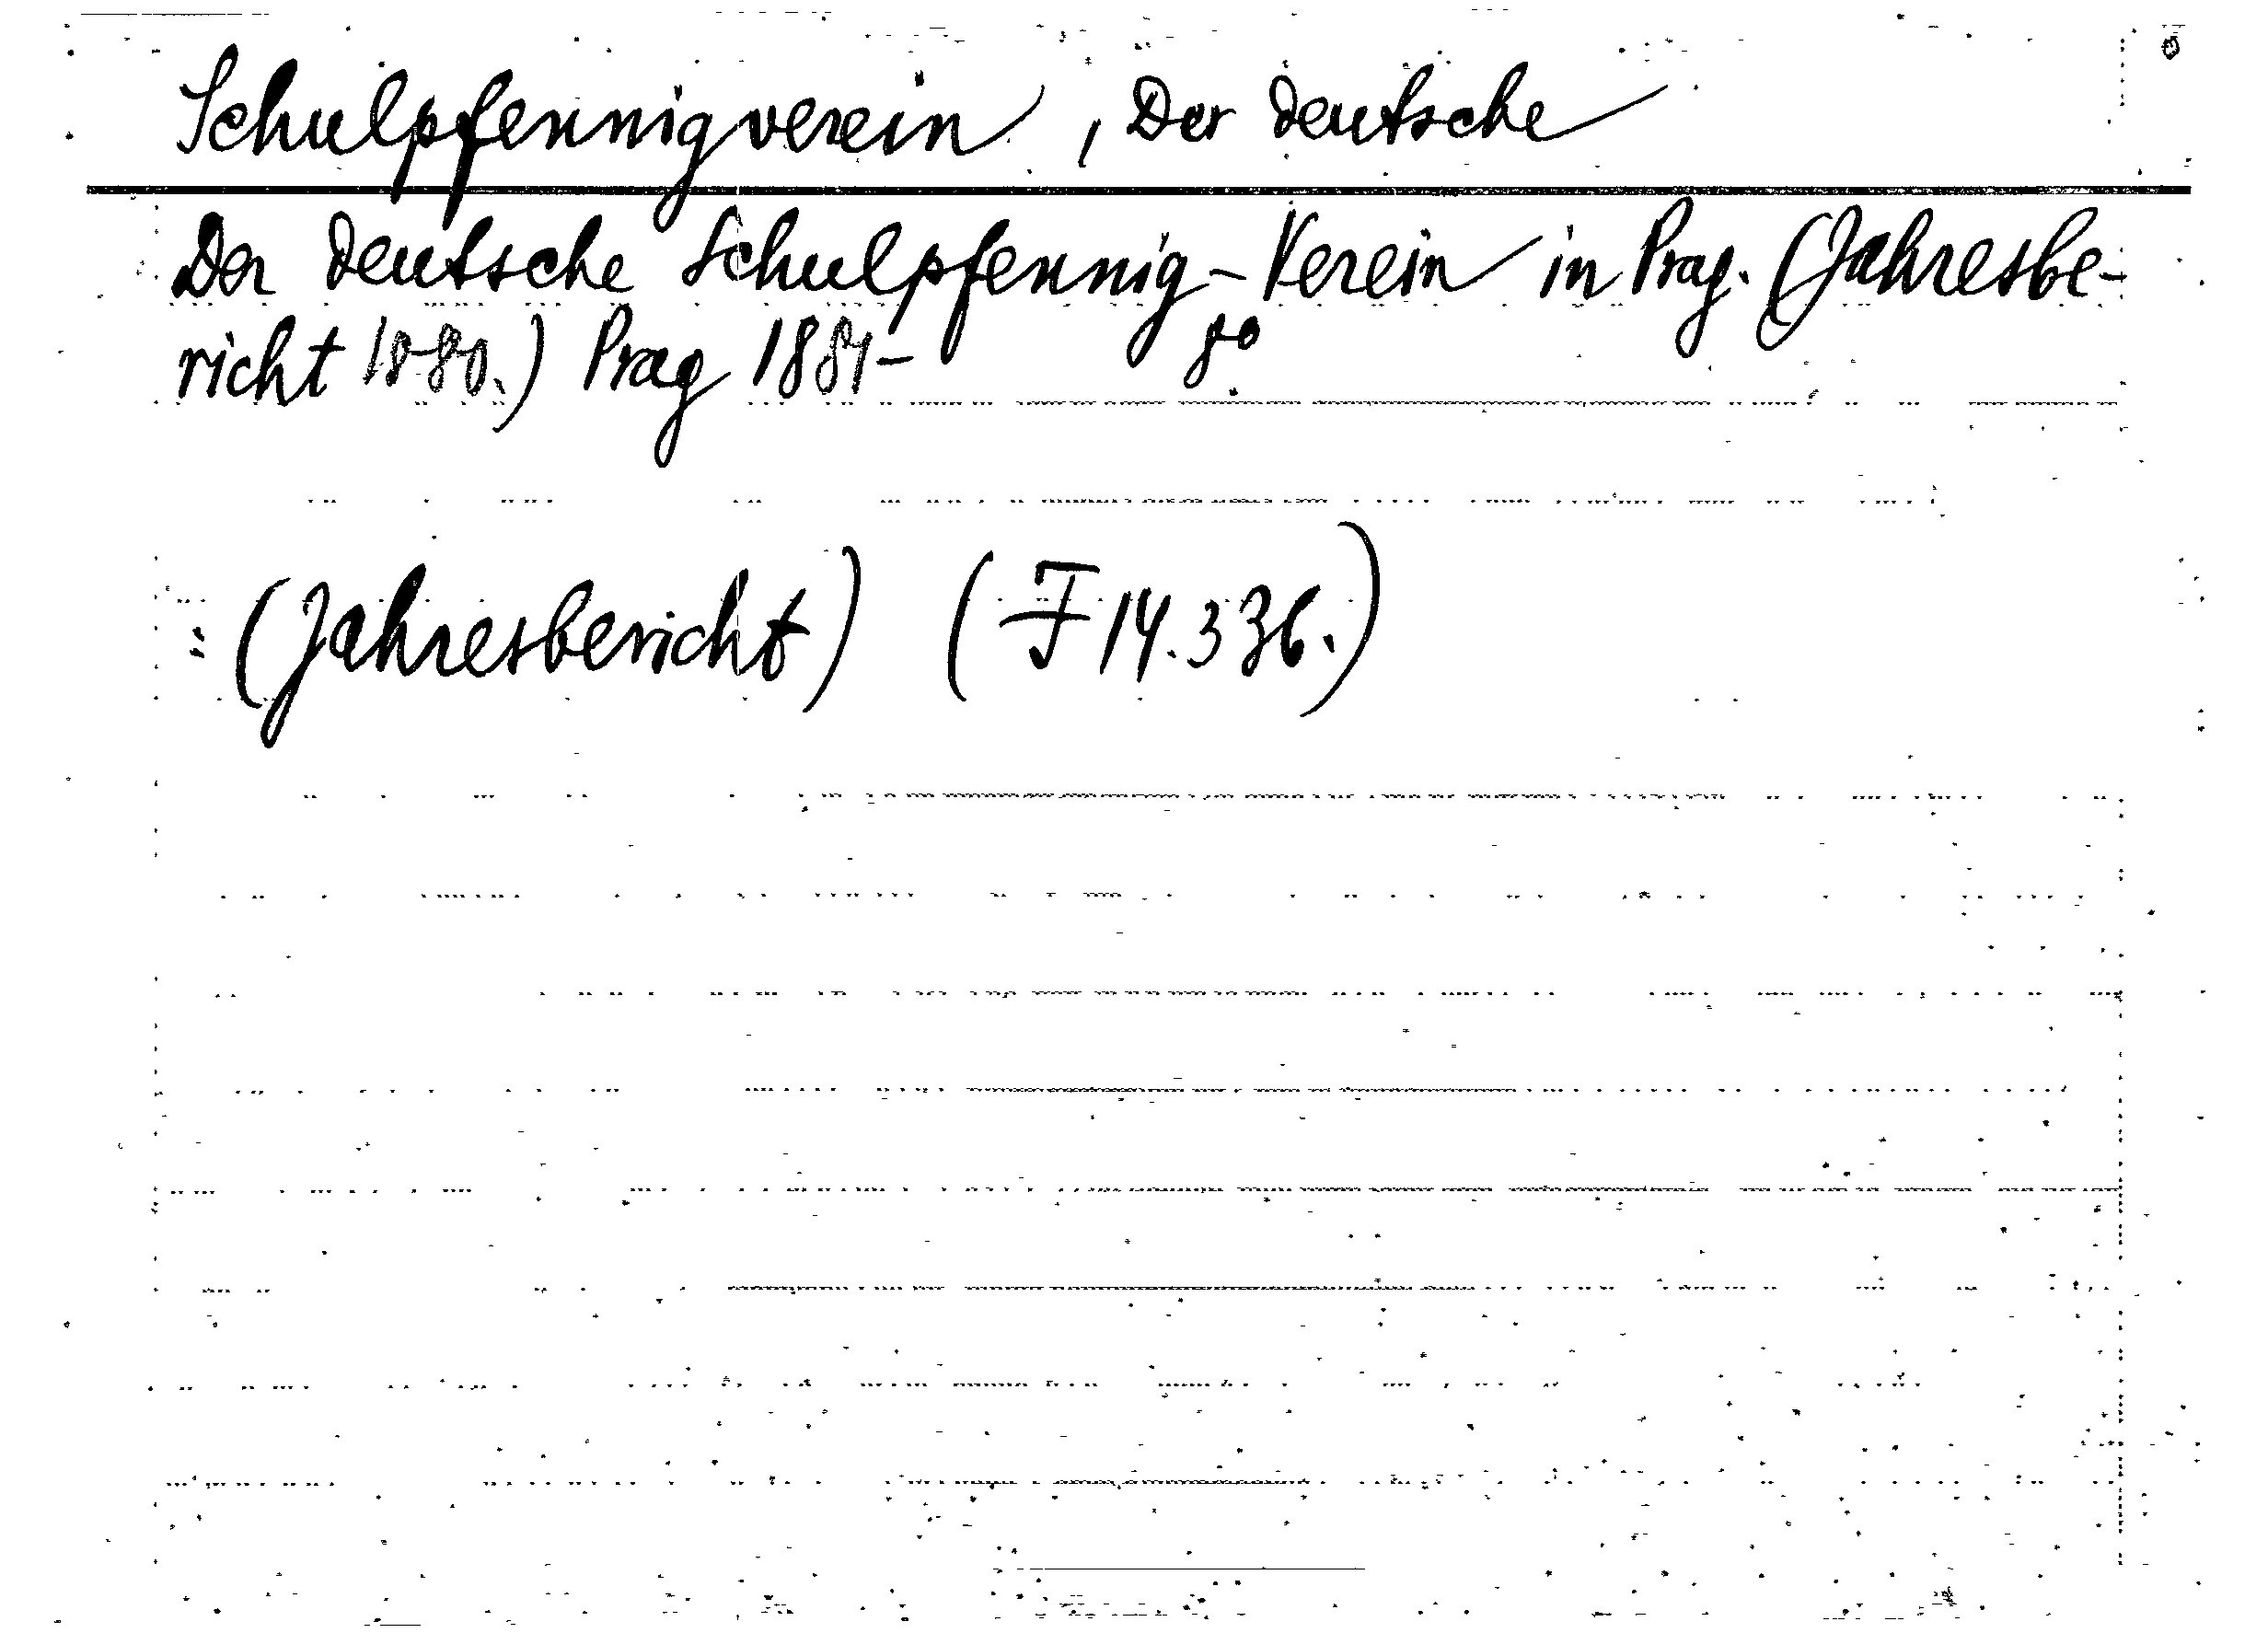 Schulpfennigverein, Der deutsche
Der deutsche Schulpfennig-Verein in Prag. (Jahresbe-
richt 1880.) Prag 1881- 8º
= (Jahresbericht) (F 14.336.)